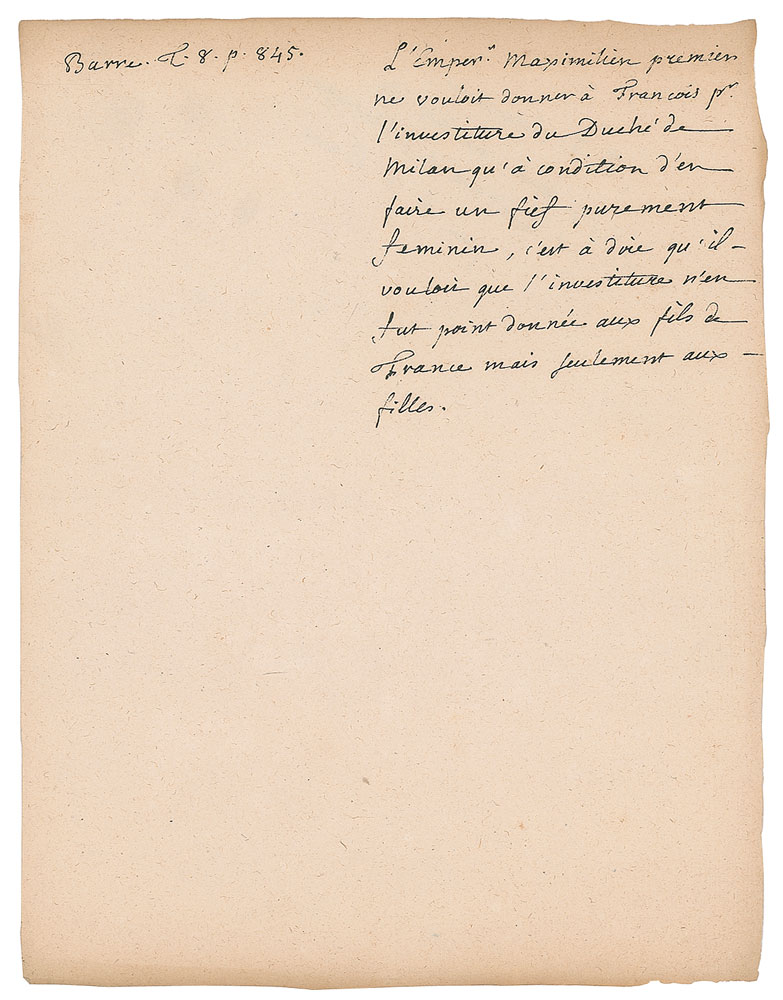 Barre. T. 8. p. 845.
L'Emper.r Maximilien premier
ne vouloit donner à François pr.
l'investiture du Duché de
Milan qu'à condition d'en
faire un fief purement
feminin, c'est à dire qu'il
vouloit que l'investiture n'en
fut point donnée aux fils de
France mais seulement aux
filles.